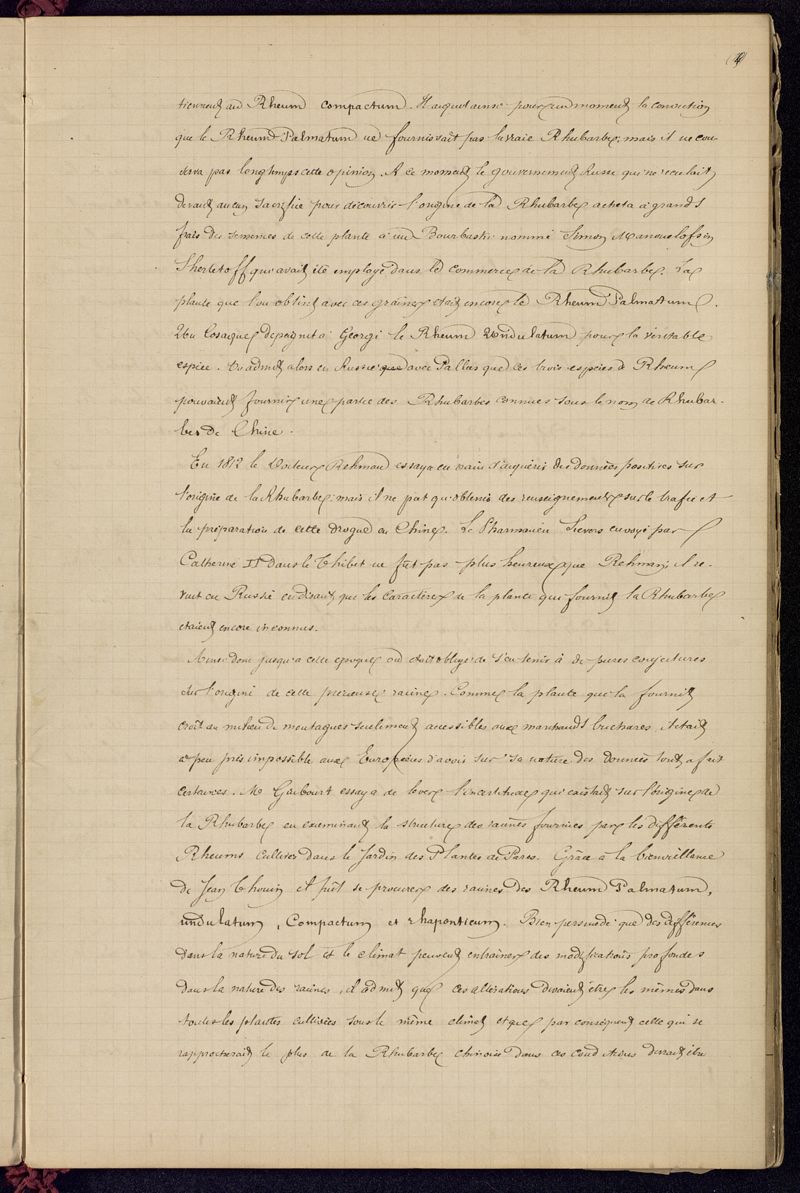 tiennent au Rheum compactum. Il acquit ainsi pour un moment la conviction
que le Rheum Palmatum ne fournissait pas la vraie Rhubarbe, mais il ne con-
serva pas longtemps cette opinion. A ce moment le gouvernement Russe qui ne reculait
devant aucun sacrifice pour découvrir l'origine de la Rhubarbe acheta à grands
frais des semences de cette plante à un Bourbastri nommé Simon Manouelofsin
Sherletoff qui avait été employé dans le commerce de la Rhubarbe. La
plante que l'on obtint avec ces graines était encore le Rheum Palmatum.
Un Cosaque depeignit à Georgi le Rheum Undulatum pour la véritable
espèce. On admit alors en Russie que avec Pallas que les trois espèces de Rheum
pouvaient fournir une partie des Rhubarbes connues sous le nom de Rhubar-
bes de Chine.
En 1812 le Docteur Rehman essaya en vain d'acquérir des données positives sur
l'origine de la Rhubarbe; mais il ne put qu'obtenir des renseignements sur le trafic et
la préparation de cette drogue en Chine. Le Pharmacien Sievers envoyé par
Catherine II dans le Thibet ne fut pas plus heureux que Rehman; il re-
vint en Russie en disant que les caractères de la plante qui fournit la Rhubarbe
étaient encore inconnus.
Ainsi donc jusqu'à cette époque on était obligé de s'en tenir à de pures conjectures
sur l'origine de cette précieuse racine. Comme la plante que la fournit
croît au milieu de montagnes seulement accessibles aux marchands buchares, c'était
à peu près impossible aux Européens d'avoir sur sa nature des données tout à fait
certaines. Mr Guibourt essaya de lever l'incertitude qui existait sur l'origine de
la Rhubarbe en examinant la structure des racines fournies par les différents
Rheums cultivés dans le Jardin des Plantes de Paris. Grâce à la bienveillance
de Jean Thouin il put se procurer des racines des Rheum Palmatum,
undulatum, Compactum et rhaponticum. Bien persuadé que des différences
dans la nature du sol et le climat peuvent entraîner des modifications profondes
dans la nature des racines, il admit que ces altérations devaient être les mêmes dans
toutes les plantes cultivées sous le même climat et que par conséquent celle qui se
rapprocherait le plus de la Rhubarbe chinoise dans ces conditions devrait être